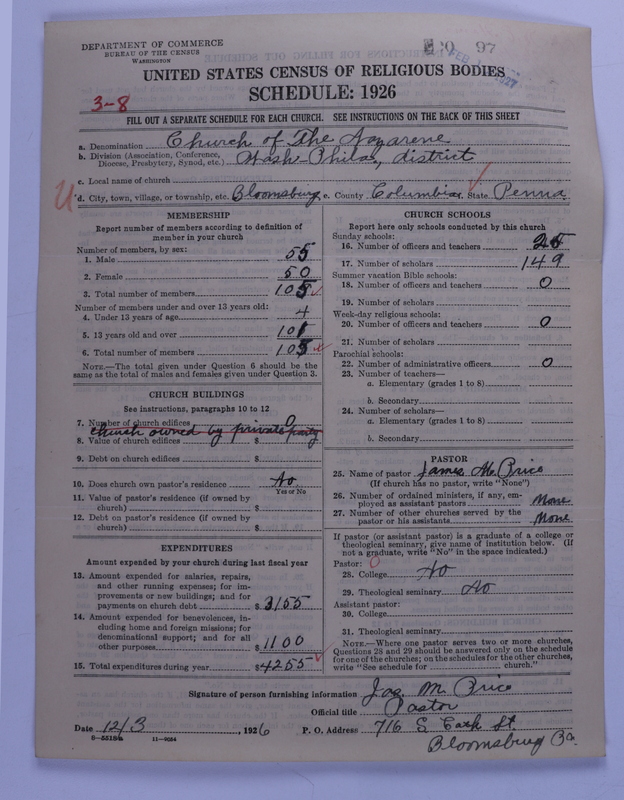 DEPARTMENT OF COMMERCE
BUREAU OF THE CENSUS
WASHINGTON
97
FEB 1927
UNITED STATES CENSUS OF RELIGIOUS BODIES
SCHEDULE: 1926
3-8
FILL OUT A SEPARATE SCHEDULE FOR EACH CHURCH. SEE INSTRUCTIONS ON THE BACK OF THIS SHEET
a. Denomination Church of The Nazarene
b. Division (Association, Conference, Diocese, Presbytery, Synod, etc.) Wash-Phila, district
c. Local name of church
d. City, town, village, or township, etc. Bloomsburg e. County Columbia State Penna
MEMBERSHIP
Report number of members according to definition of
member in your church
Number of members, by sex:
1. Male 55
2. Female 50
3. Total number of members 105
Number of members under and over 13 years old:
4. Under 13 years of age 4
5. 13 years old and over 101
6. Total number of members 105
NOTE.—The total given under Question 6 should be the
same as the total of males and females given under Question 3.
CHURCH BUILDINGS
See instructions, paragraphs 10 to 12
7. Number of church edifices 0
church owned by private party
8. Value of church edifices $
9. Debt on church edifices $
10. Does church own pastor's residence No
Yes or No
11. Value of pastor's residence (if owned by
church) $
12. Debt on pastor's residence (if owned by
church) $
EXPENDITURES
Amount expended by your church during last fiscal year
13. Amount expended for salaries, repairs,
and other running expenses; for im-
provements or new buildings; and for
payments on church debt $ 3155
14. Amount expended for benevolences, in-
cluding home and foreign missions; for
denominational support; and for all
other purposes $ 1100
15. Total expenditures during year $ 4255
CHURCH SCHOOLS
Report here only schools conducted by this church
Sunday schools:
16. Number of officers and teachers
17. Number of scholars 149
Summer vacation Bible schools:
18. Number of officers and teachers 0
19. Number of scholars
Week-day religious schools:
20. Number of officers and teachers 0
21. Number of scholars
Parochial schools:
22. Number of administrative officers 0
23. Number of teachers—
a. Elementary (grades 1 to 8)
b. Secondary
24. Number of scholars—
a. Elementary (grades 1 to 8)
b. Secondary
PASTOR
25. Name of pastor James M. Price
(If church has no pastor, write "None")
26. Number of ordained ministers, if any, em-
ployed as assistant pastors None
27. Number of other churches served by the
pastor or his assistants None
If pastor (or assistant pastor) is a graduate of a college or
theological seminary, give name of institution below. (If
not a graduate, write "No" in the space indicated.)
Pastor: 0
28. College No
29. Theological seminary No
Assistant pastor:
30. College
31. Theological seminary
NOTE.—Where one pastor serves two or more churches,
Questions 28 and 29 should be answered only on the schedule
for one of the churches; on the schedules for the other churches,
write "See schedule for church."
Signature of person furnishing information Jas. M. Price
Official title Pastor
Date 12/3, 1926 P. O. Address 716 S
Bloomsburg Pa.
11-9084